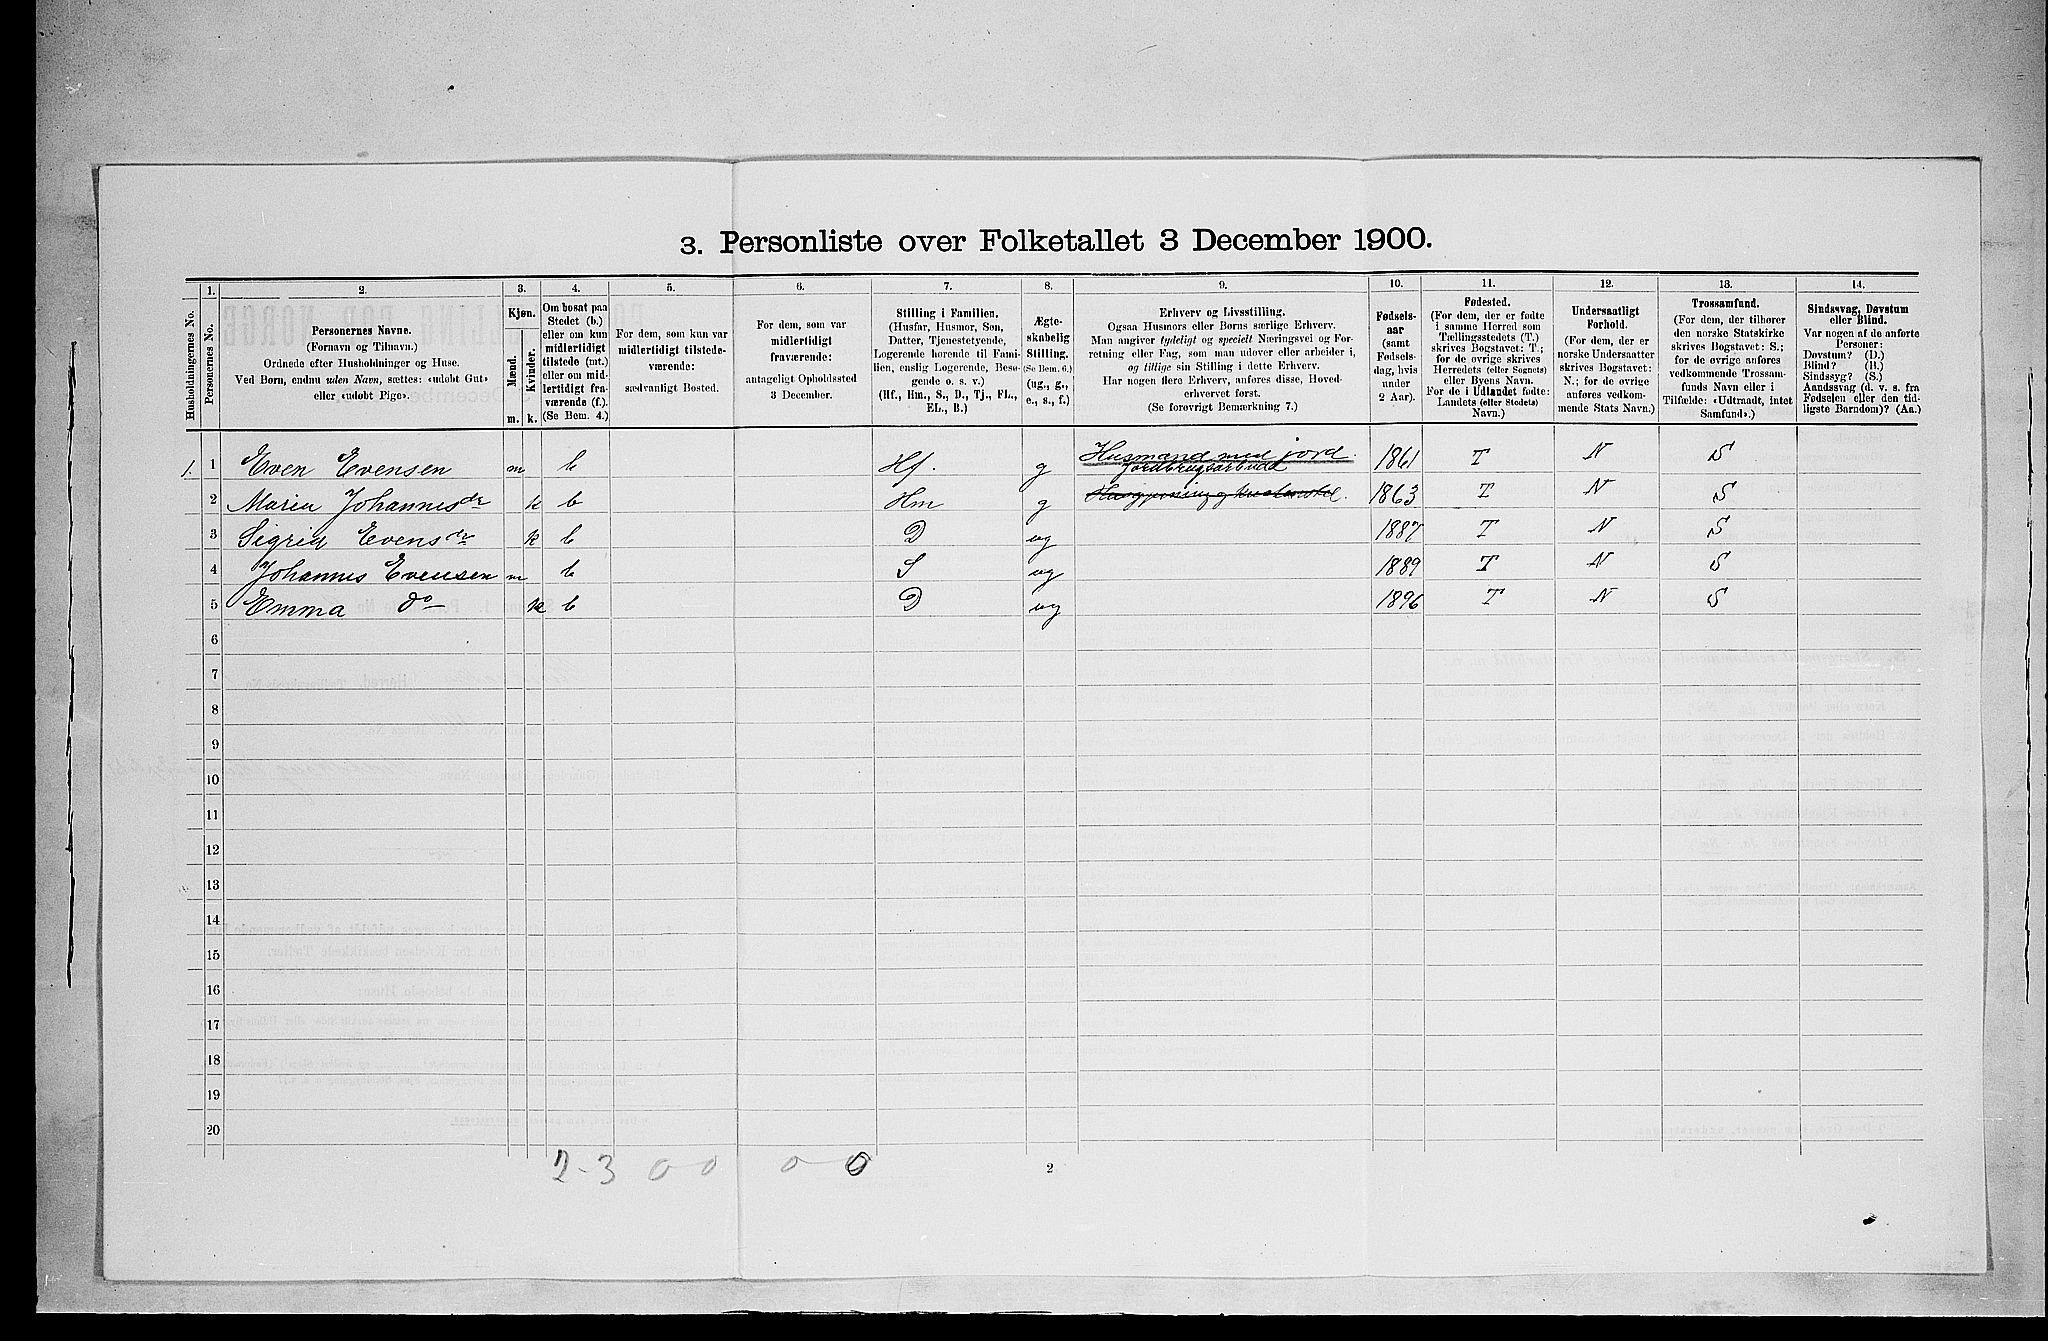 3. Personliste over Folketallet 3 December 1900.
Husholdningernes No.
1.
Personernes No.
2.
Personernes Navne.
(Fornavn og Tilnavn.)
Ordnede efter Husholdninger og Huse.
Ved Børn, endnu uden Navn, sættes: «udøbt Gut»
eller «udøbt Pige».
3.
Kjøn.
Mænd.
Kvinder.
m. k.
4.
Om bosat paa
Stedet (b.)
eller om kun
midlertidigt
tilstede (mt.)
eller om mid-
lertidigt fra-
værende (f.).
(Se Bem. 4.)
5.
For dem, som kun var
midlertidigt tilstede-
værende:
sædvanligt Bosted.
6.
For dem, som var
midlertidigt
fraværende:
antageligt Opholdssted
3 December.
7.
Stilling i Familien.
(Husfar, Husmor, Søn,
Datter, Tjenestetyende,
Logerende hørende til Fami-
lien, enslig Logerende, Besø-
gende o. s. v.)
(Hf., Hm., S., D., Tj., FL.,
EL., B.)
8.
Ægte-
skabelig
Stilling.
(Se Bem. 6.)
(ug., g.,
e., s., f.)
9.
Erhverv og Livsstilling.
Ogsaa Husmors eller Børns særlige Erhverv.
Man angiver tydeligt og specielt Næringsvei og For-
retning eller Fag, som man udøver eller arbeider i,
og tillige sin Stilling i dette Erhverv.
Har nogen flere Erhverv, anføres disse, Hoved-
erhvervet først.
(Se forøvrigt Bemærkning 7.)
10.
Fødsels-
aar
(samt
Fødsels-
dag, hvis
under
2 Aar).
11.
Fødested.
(For dem, der er fødte
i samme Herred som
Tællingsstedets (T.)
skrives Bogstavet: T.;
for de øvrige skrives
Herredets (eller Sognets)
eller Byens Navn.
For de i Udlandet fødte:
Landets (eller Stedets)
Navn.)
12.
Undersaatligt
Forhold.
(For dem, der er
norske Undersaatter
skrives Bogstavet:
N.; for de øvrige
anføres vedkom-
mende Stats Navn.)
13.
Trossamfund.
(For dem, der tilhører
den norske Statskirke
skrives Bogstavet: S.;
for de øvrige anføres
vedkommende Trossam-
funds Navn eller i
Tilfælde: «Udtraadt, intet
Samfund».)
14.
Sindssvag, Døvstum
eller Blind.
Var nogen af de anførte
Personer:
Døvstum? (D.)
Blind? (B.)
Sindssyg? (S.)
Aandssvag (d. v. s. fra
Fødselen eller den tid-
ligste Barndom)? (Aa.)
1. 1 Even Evensen m b Hf. g Husmand med jord. Jordbrugsarbeide 1861 T N S
2 Maria Johannesdr k b Hm g 1863 T N S
3 Sigrid Evensdr k b D ug 1887 T N S
4 Johannes Evensen m b S ug 1889 T N S
5 Emma do k b D ug 1896 T N S
6
7
8
9
10
11
12
13
14
15
16
17
18
19
20
2-3 0 0 0 0
2